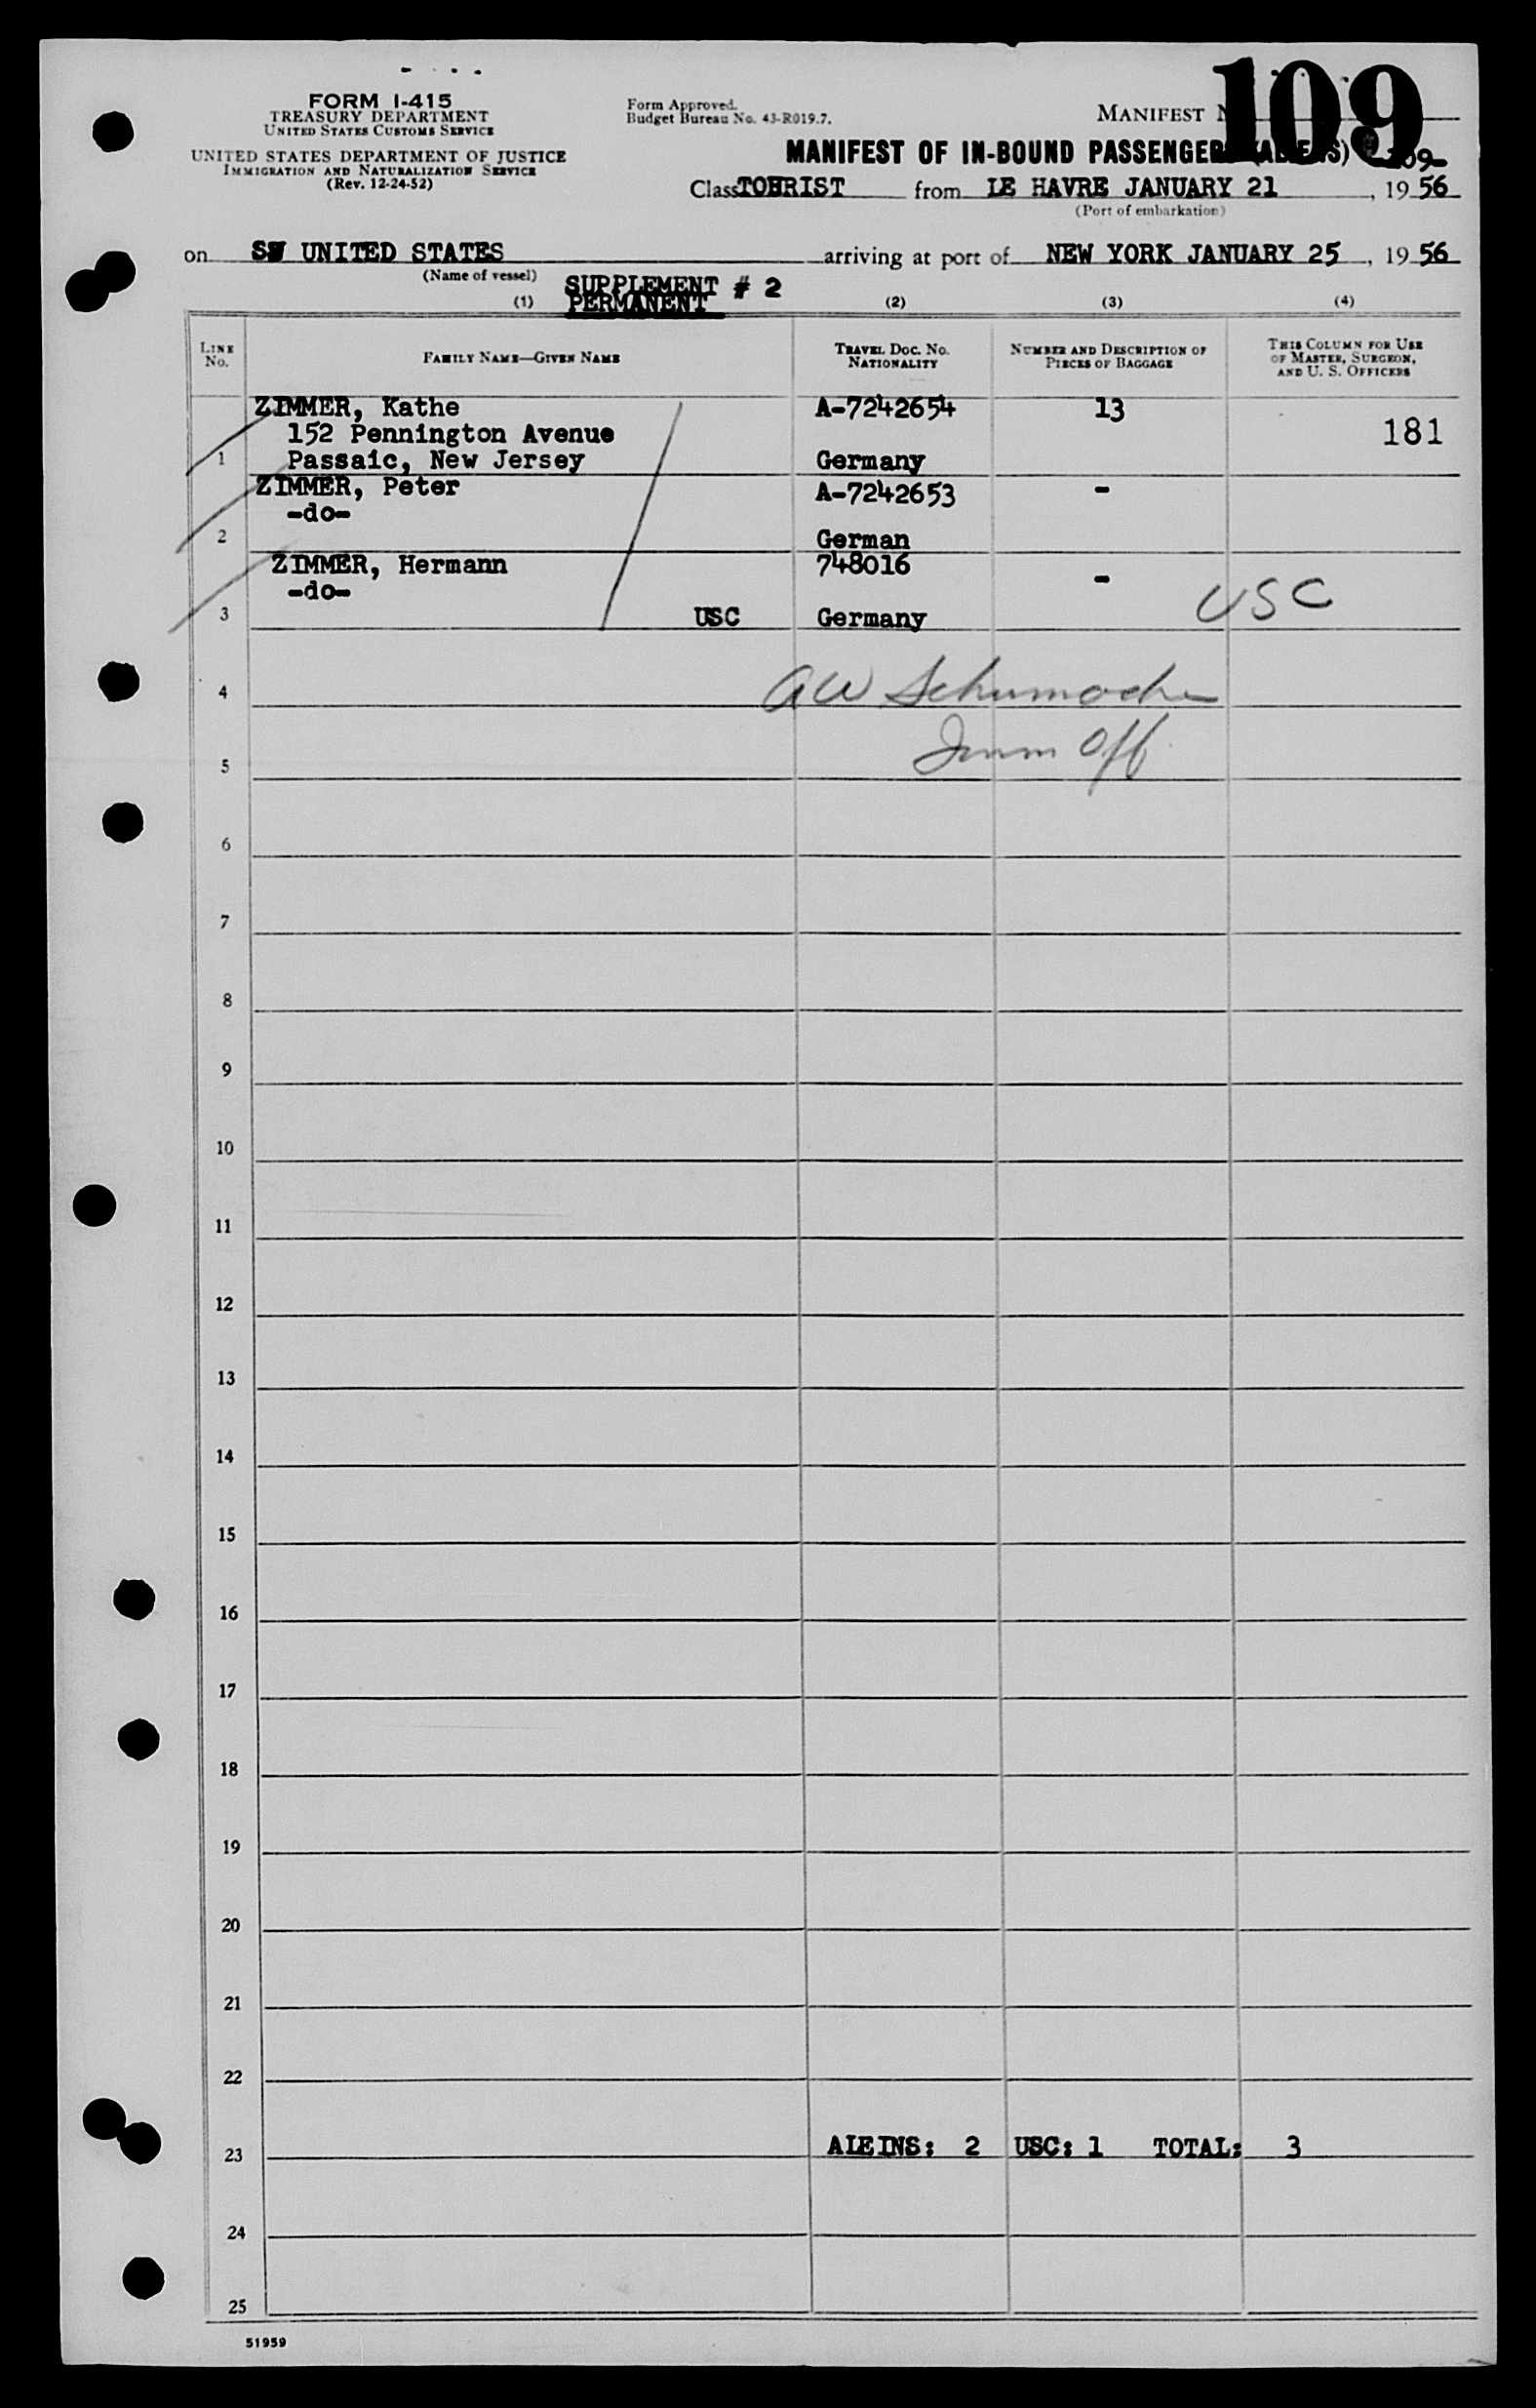 109
FORM I-415
TREASURY DEPARTMENT
UNITED STATES CUSTOMS SERVICE
UNITED STATES DEPARTMENT OF JUSTICE
IMMIGRATION AND NATURALIZATION SERVICE
(Rev. 12-24-52)
Form Approved.
Budget Bureau No. 43-R019.7.
MANIFEST
MANIFEST OF IN-BOUND PASSENGERS (ALIENS)
Class TOURIST from LE HAVRE JANUARY 21, 1956
(Port of embarkation)
on SS UNITED STATES arriving at port of NEW YORK JANUARY 25, 1956
(Name of vessel)
SUPPLEMENT # 2
PERMANENT
(1) (2) (3) (4)
LINE No. FAMILY NAME—GIVEN NAME TRAVEL DOC. NO. NATIONALITY NUMBER AND DESCRIPTION OF PIECES OF BAGGAGE THIS COLUMN FOR USE OF MASTER, SURGEON, AND U. S. OFFICERS
ZIMMER, Kathe A-7242654 13
152 Pennington Avenue 181
1 Passaic, New Jersey Germany
ZIMMER, Peter A-7242653 -
-do-
2 German
ZIMMER, Hermann 748016 -
-do-
3 USC Germany USC
4 AW Schumacher
5 Imm Off
6
7
8
9
10
11
12
13
14
15
16
17
18
19
20
21
22
23 ALEINS: 2 USC: 1 TOTAL: 3
24
25
51959